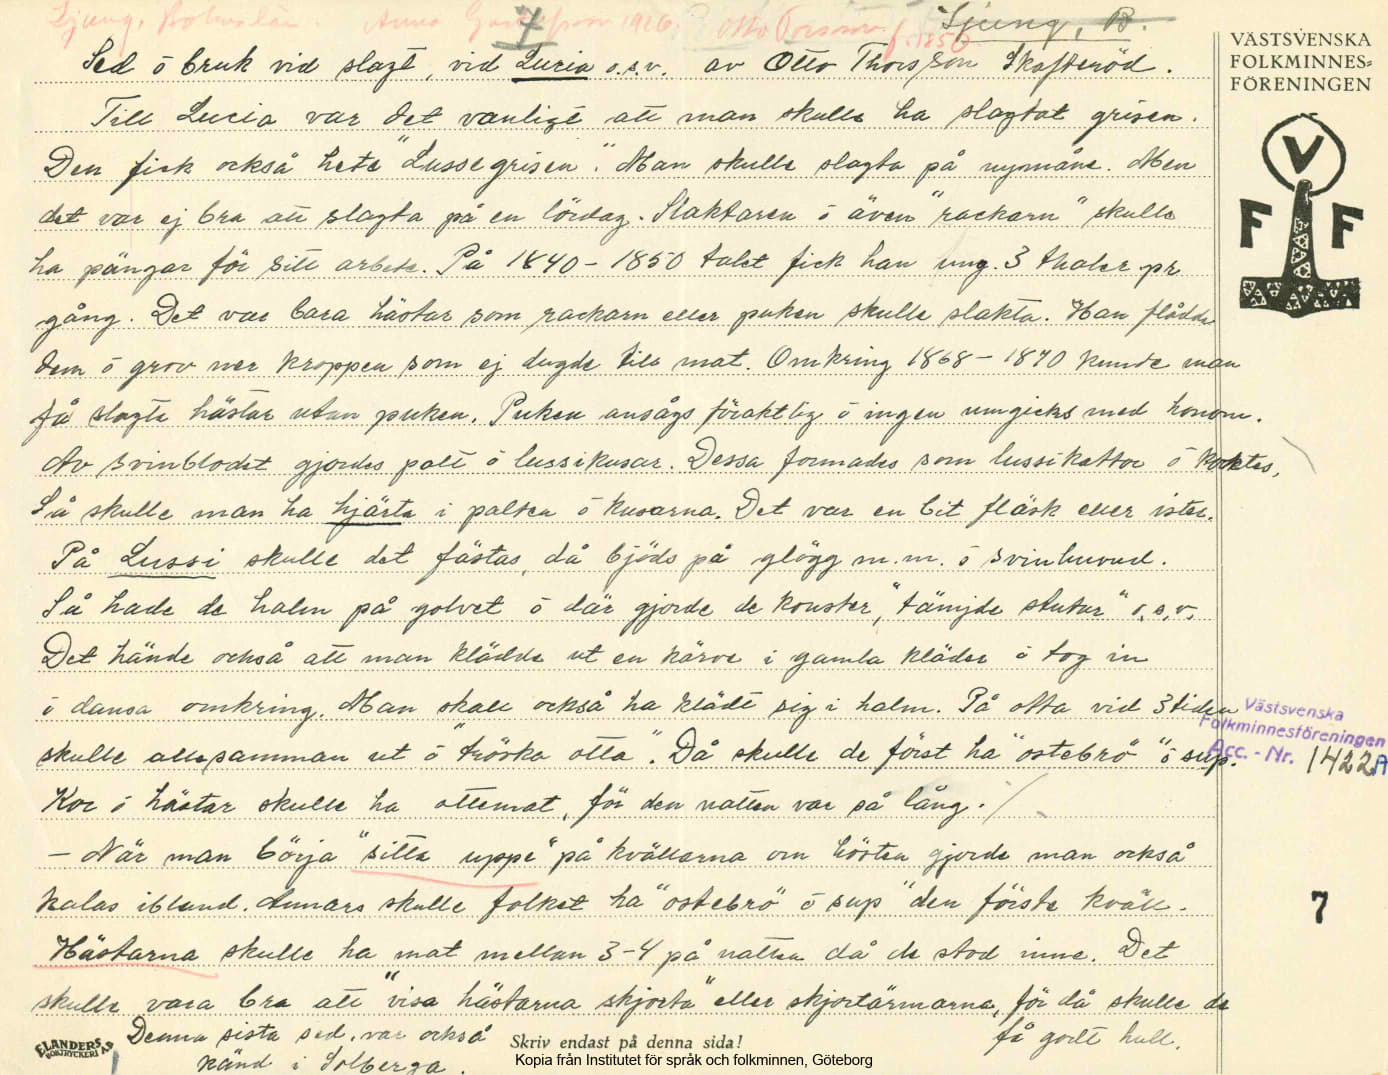 Ljung, Bohuslän. Anna Gustafsson 1926. Otto Torsson f. 1850
7 Ljung, B.
VÄSTSVENSKA
FOLKMINNES-
FÖRENINGEN
V
F F
Sed ō bruk vid slagt, vid Lucia o.s.v. av Otto Thorsson Skafteröd.
Till Lucia var det vanligt att man skulle ha slagtat grisen.
Den fick också hete "Lussegrisen". Man skulle slagta på nymåne. Men
det var ej bra att slagta på en lördag. Slaktaren ō även "rackarn" skulle
ha pängar för sitt arbete. På 1840-1850 talet fick han ung. 3 thaler pr
gång. Det var bara hästar som rackarn eller puken skulle slakta. Han flådde
dem ō grov ner kroppen som ej dugde till mat. Omkring 1868-1870 kunde man
få slagta hästar utan puken. Puken ansågs föraktlig ō ingen umgicks med honom.
Av svinblodet gjordes palt ō lussikusar. Dessa formades som lussikattor ō koktes,
Så skulle man ha hjärta i palten ō kusarna. Det var en bit fläsk eller ister.
På Lussi skulle det fästas, då bjöds på glögg m.m. ō svinhuvud.
Så hade de halm på golvet ō där gjorde de konster, "tämjde stutar" o.s.v.
Det hände också att man klädde ut en kärve i gamla kläder ō tog in
ō dansa omkring. Man skall också ha klädt sig i halm. På otta vid 3 tiden
skulle allesamman ut ō "tröska otta". Då skulle de först ha "ostebrö" ō sup.
Västsvenska
Folkminnesföreningen
Acc.-Nr. 1422A
Kor ō hästar skulle ha ottemat, för den natten var så lång.
— När man börja "sitta uppe" på kvällarna om hösten gjorde man också
kalas ibland. Annars skulle folket ha "ostebrö ō sup" den förste kväll.
7
Hästarna skulle ha mat mellan 3-4 på natten då de stod inne. Det
skulle vara bra att "visa hästarna skjorta" eller skjortärmarna, för då skulle de
få godt hull.
Denna sista sed var också
känd i Solberga.
ELANDERS
BOKTRYCKERI AB
Skriv endast på denna sida!
Kopia från Institutet för språk och folkminnen, Göteborg